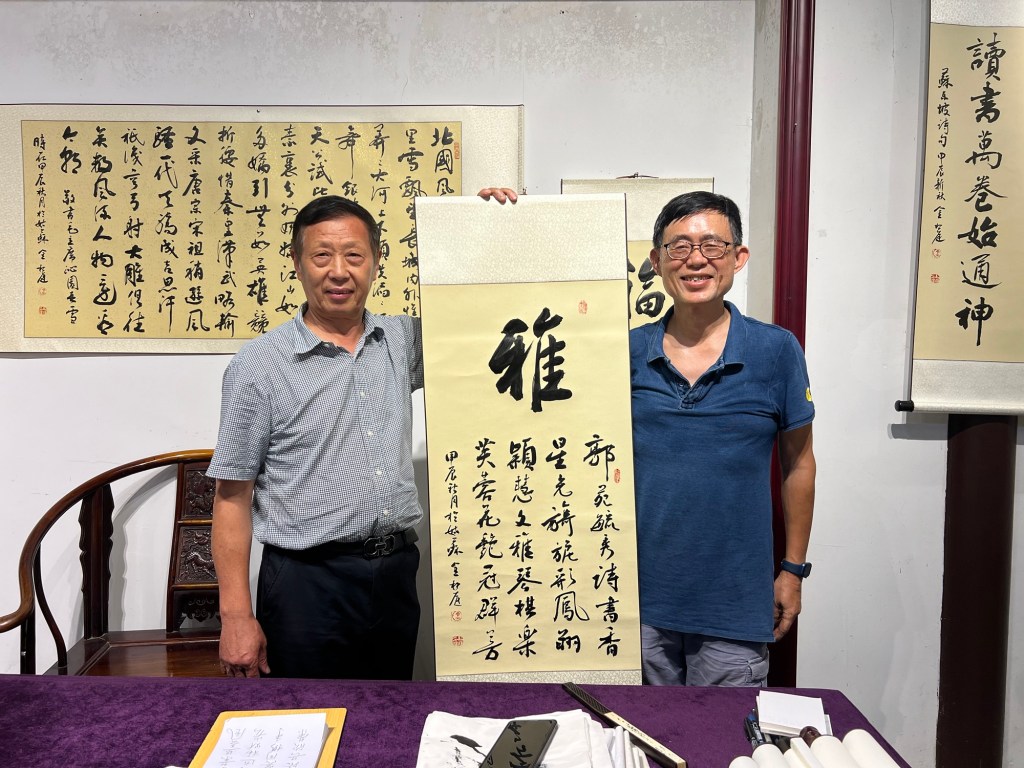 北國风
里雪飄望長城内外惟
莽大河上下頓失滔
舞銀
天公試比
素裹分外妖嬈江山如
多嬌引無數英雄競
折腰惜秦皇漢武略輸
文采唐宗宋祖稍遜風
騷一代天驕成吉思汗
祇識彎弓射大雕俱往
矣數風流人物還看
今朝 敬書毛主席沁園春雪
時在甲辰秋月於姑蘇 金松庭
雅
郭苑毓秀詩書香
星光旖旎形鳳翔
穎慧文雅琴棋樂
芙蓉花艷冠群芳
甲辰秋月於姑蘇 金松庭
福
讀書萬卷始通神
蘇東坡詩句 甲辰新秋 金松庭